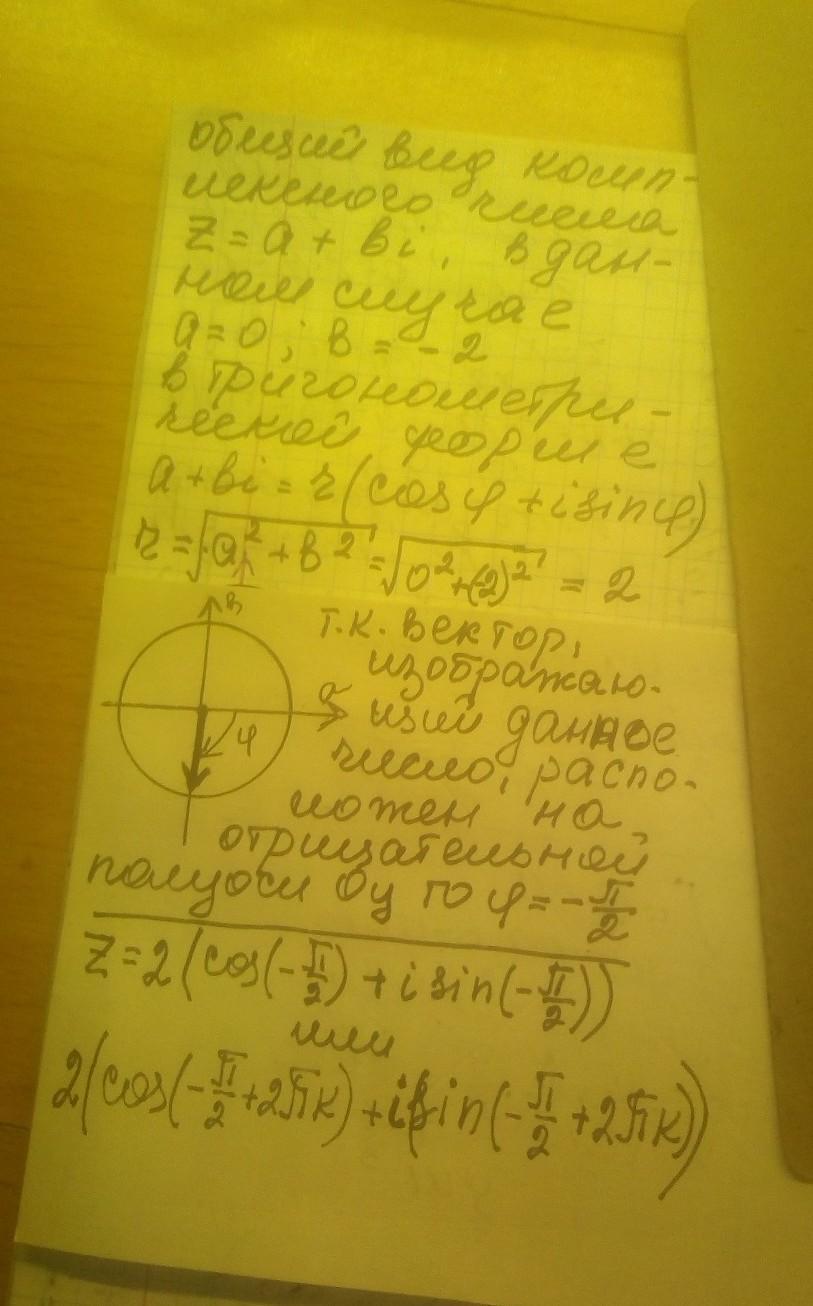 общий вид комп-
лексного числа
z = a + bi, в дан-
ном случае
a = 0; b = -2
в тригонометри-
ческой форме
a + bi = r(cosφ + i sinφ)
r = √a² + b² = √0² + (-2)² = 2
b
т.к. вектор,
изобража­ю-
a
щий данное
φ
число, распо-
ложен на
отрицательной
полуоси Oy то φ = -π/2
z = 2(cos(-π/2) + i sin(-π/2))
или
2(cos(-π/2 + 2πk) + i sin(-π/2 + 2πk))